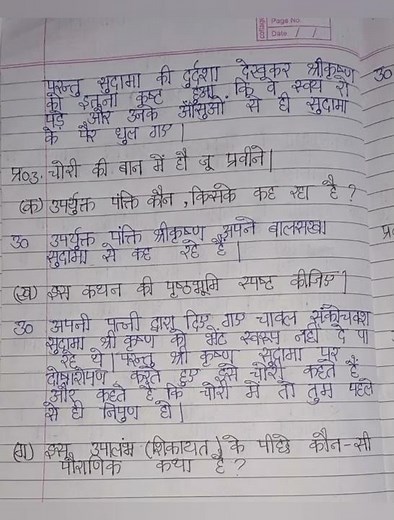 Page No.
Date / /
परन्तु सुदामा की दुर्दशा देखकर श्रीकृष्ण
को इतना कष्ट हुआ कि वे स्वयं रो
पड़े और उनके आँसुओं से ही सुदामा
के पैर धुल गए।
प्र०3. चोरी की बान में हौ जू प्रवीने।
(क) उपर्युक्त पंक्ति कौन, किससे कह रहा है?
उ० उपर्युक्त पंक्ति श्रीकृष्ण अपने बालसखा
सुदामा से कह रहे हैं।
(ख) इस कथन की पृष्ठभूमि स्पष्ट कीजिए।
उ० अपनी पत्नी द्वारा दिए गए चावल संकोचवश
सुदामा श्री कृष्ण को भेंट स्वरूप नहीं दे पा
रहे थे। परन्तु श्री कृष्ण सुदामा पर
दोषारोपण करते हुए इसे चोरी कहते हैं
और कहते है कि चोरी में तो तुम पहले
से ही निपुण हो।
(ग) इस उपालंभ (शिकायत) के पीछे कौन-सी
पौराणिक कथा है?
उ०